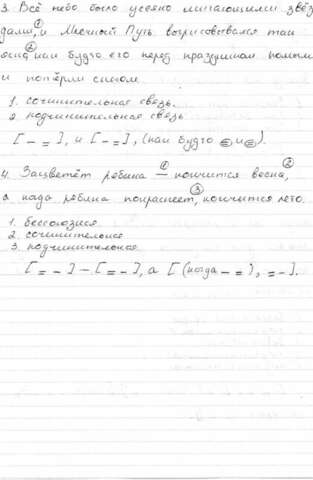 3. Всё небо было усеяно мигающими звёз
дами,① и Млечный Путь вырисовывался так
ясно,② как будто его перед праздником помыли
и потёрли снегом.
1. сочинительная связь.
2. подчинительная связь
[ - = ], и [ - = ], (как будто = и = ).
4. Зацветёт рябина ①— кончится весна, ②
а когда рябина покраснеет, ③ кончится лето.
1. бессоюзная.
2. сочинительная
3. подчинительная.
[ = - ] – [ = - ], а [ (когда - = ), = - ].